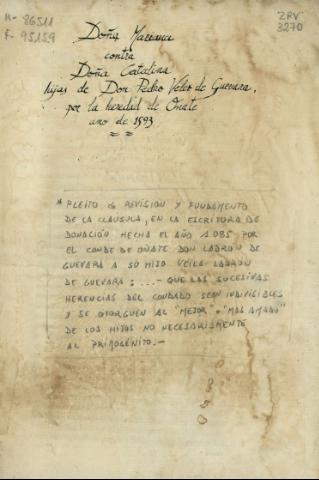 M- 86511
F- 95159
ZRV
3270
Doña Mariana
contra
Doña Catalina
hijas de Don Pedro Velez de Guevara,
por la heredad de Oñate
ano de 1593
* PLEITO DE REVISION Y FUNDAMENTO
DE LA CLAUSULA, EN LA ESCRITURA DE
DONACIÓN HECHA EL AÑO 1085 POR
EL CONDE DE OÑATE DON LADRON DE
GUEVARA A SU HIJO VEILA LADRON
DE GUEVARA: ...- QUE LAS SUCESIVAS
HERENCIAS DEL CONDADO SEAN INDIVISIBLES
Y SE OTORGUEN AL "MEJOR" o "MAS AMADO"
DE LOS HIJOS NO NECESARIAMENTE
AL PRIMOGÉNITO.-